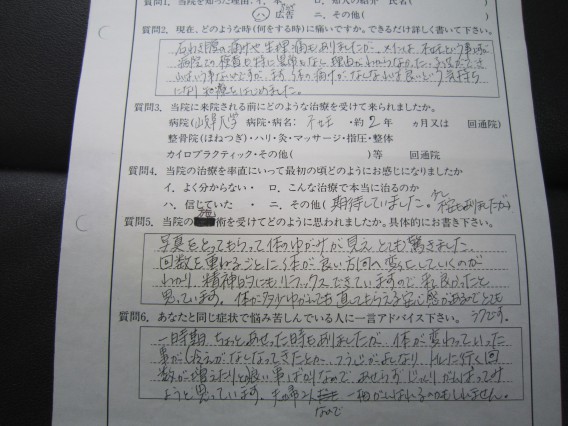 質問1. 当院を知った理由.イ. 本 ロ. 知人の紹介 氏名(
ハ.広告 ニ. その他( )
質問2. 現在、どのような時(何をする時)に痛いですか。できるだけ詳しく書いて下さい。
右わき腹の痛みや生理痛もありましたが、メインは、不妊という事で
病院での検査も特に異常もなく、理由がわからなかった。
まず、体の痛みがなくなれば良いという気持ち
になり、治療をはじめました。
質問3. 当院に来院される前にどのような治療を受けて来られましたか。
病院(岐阜大学 病院・病名: 不妊 ・約 2 年 ヵ月又は 回通院)
整骨院(ほねつぎ)・ハリ・灸・マッサージ・指圧・整体
カイロプラクティック・その他( )等 回通院
質問4. 当院の治療を率直にいって最初の頃どのようにお感じになりましたか
イ. よく分からない・ ロ. こんな治療で本当に治るのか
ハ. 信じていた ・ ニ. その他(期待していました。少し 不安もありましたが)
質問5. 当院の施術を受けてどのように思われましたか。具体的にお書き下さい。
写真をとってもらって体のゆがみが見え、とても驚きました。
回数を重ねるごとに、体が良い方向へ変化していくのが
わかり、精神的にもリラックスできていますので、私良かったと
思っています。体が多少ゆがんでも直してもらえる安心感があるのでとても
ラクです。
質問6. あなたと同じ症状で悩み苦しんでいる人に一言アドバイス下さい。
一時期、ちょっとあせった時もありましたが、体が変わっていった
事が(冷えがなくなってきたとか、つうじがよくなり、トイレに行く回
数が増えたり)と良い事ばかりなので、あせらずじっくりがんばってみ
ようと思っています。
なので